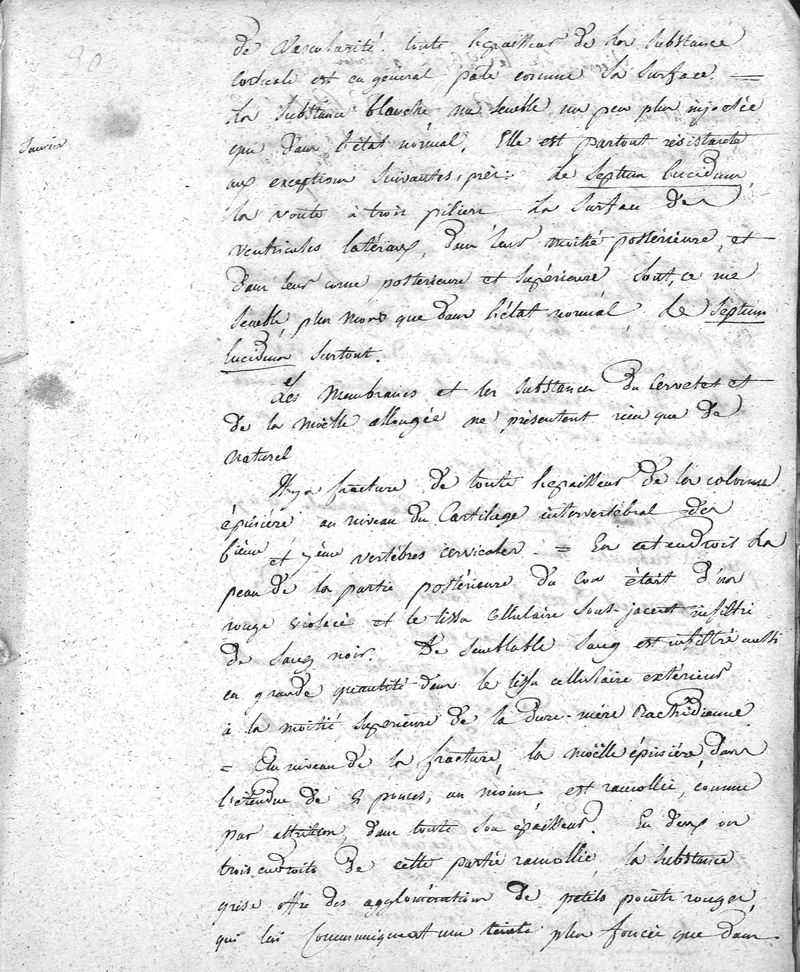 de vascularité. toute l'epaisseur de la substance
corticale est en général pâle comme la surface. =
La substance blanche me semble un peu plus injectée
que dans l'état normal. Elle est partout résistante
aux exceptions suivantes, près: Le Septum lucidum,
la voute à trois piliers La surface des
ventricules latéraux, dans leur moitié postérieure, et
dans leur corne posterieure et supérieure sont, ce me
semble, plus mous que dans l'état normal, Le Septum
lucidum surtout.
Les Membranes et les substances du Cervelet et
de la moëlle allongée ne présentent rien que de
naturel
Il y a fracture de toute l'epaisseur de la colonne
épinière au niveau du Cartilage intervertébral des
6ième et 7ème vertèbres cervicales. = En cet endroit La
peau de la partie postérieure du Cou était d'un
rouge violacé et le tissu cellulaire sous-jacent infiltré
de sang noir. De semblable sang est infiltré aussi
en grande quantité dans le tissu cellulaire extérieur
à la moitié supérieure de la Dure-mère Rachidienne
= Au niveau de la fracture, la moëlle épinière, dans
l'étendue de 2 pouces, au moins, est ramollie, comme
par attrition, dans toute son épaisseur. En deux ou
trois endroits de cette partie ramollie, la substance
grise offre des agglomération de petits points rouges,
qui lui Communiquent une teinte plus foncée que dans